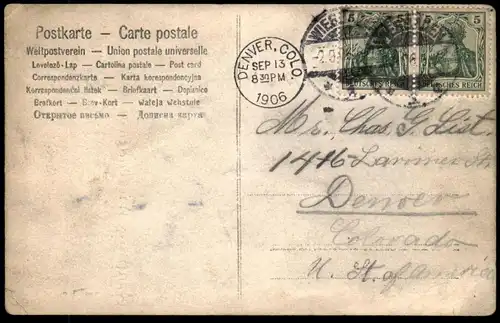 Postkarte – Carte postale
Weltpostverein – Union postale universelle
Levelező-Lap – Cartolina postale – Post card
Correspondenzkarte – Karta korespondencyjna
Korespondenční lístek – Briefkaart – Dopisnice
Brefkort – Brev-Kort – Waleja wehstule
Открытое письмо –
DENVER, COLO.
SEP 13
8 30 PM
1906
WIESB
5
5
DEUTSCHES REICH
DEUTSCHES REICH
Mr. Chas G. List.
1416 Larimer St
Denver
Colorado
U. St. of America